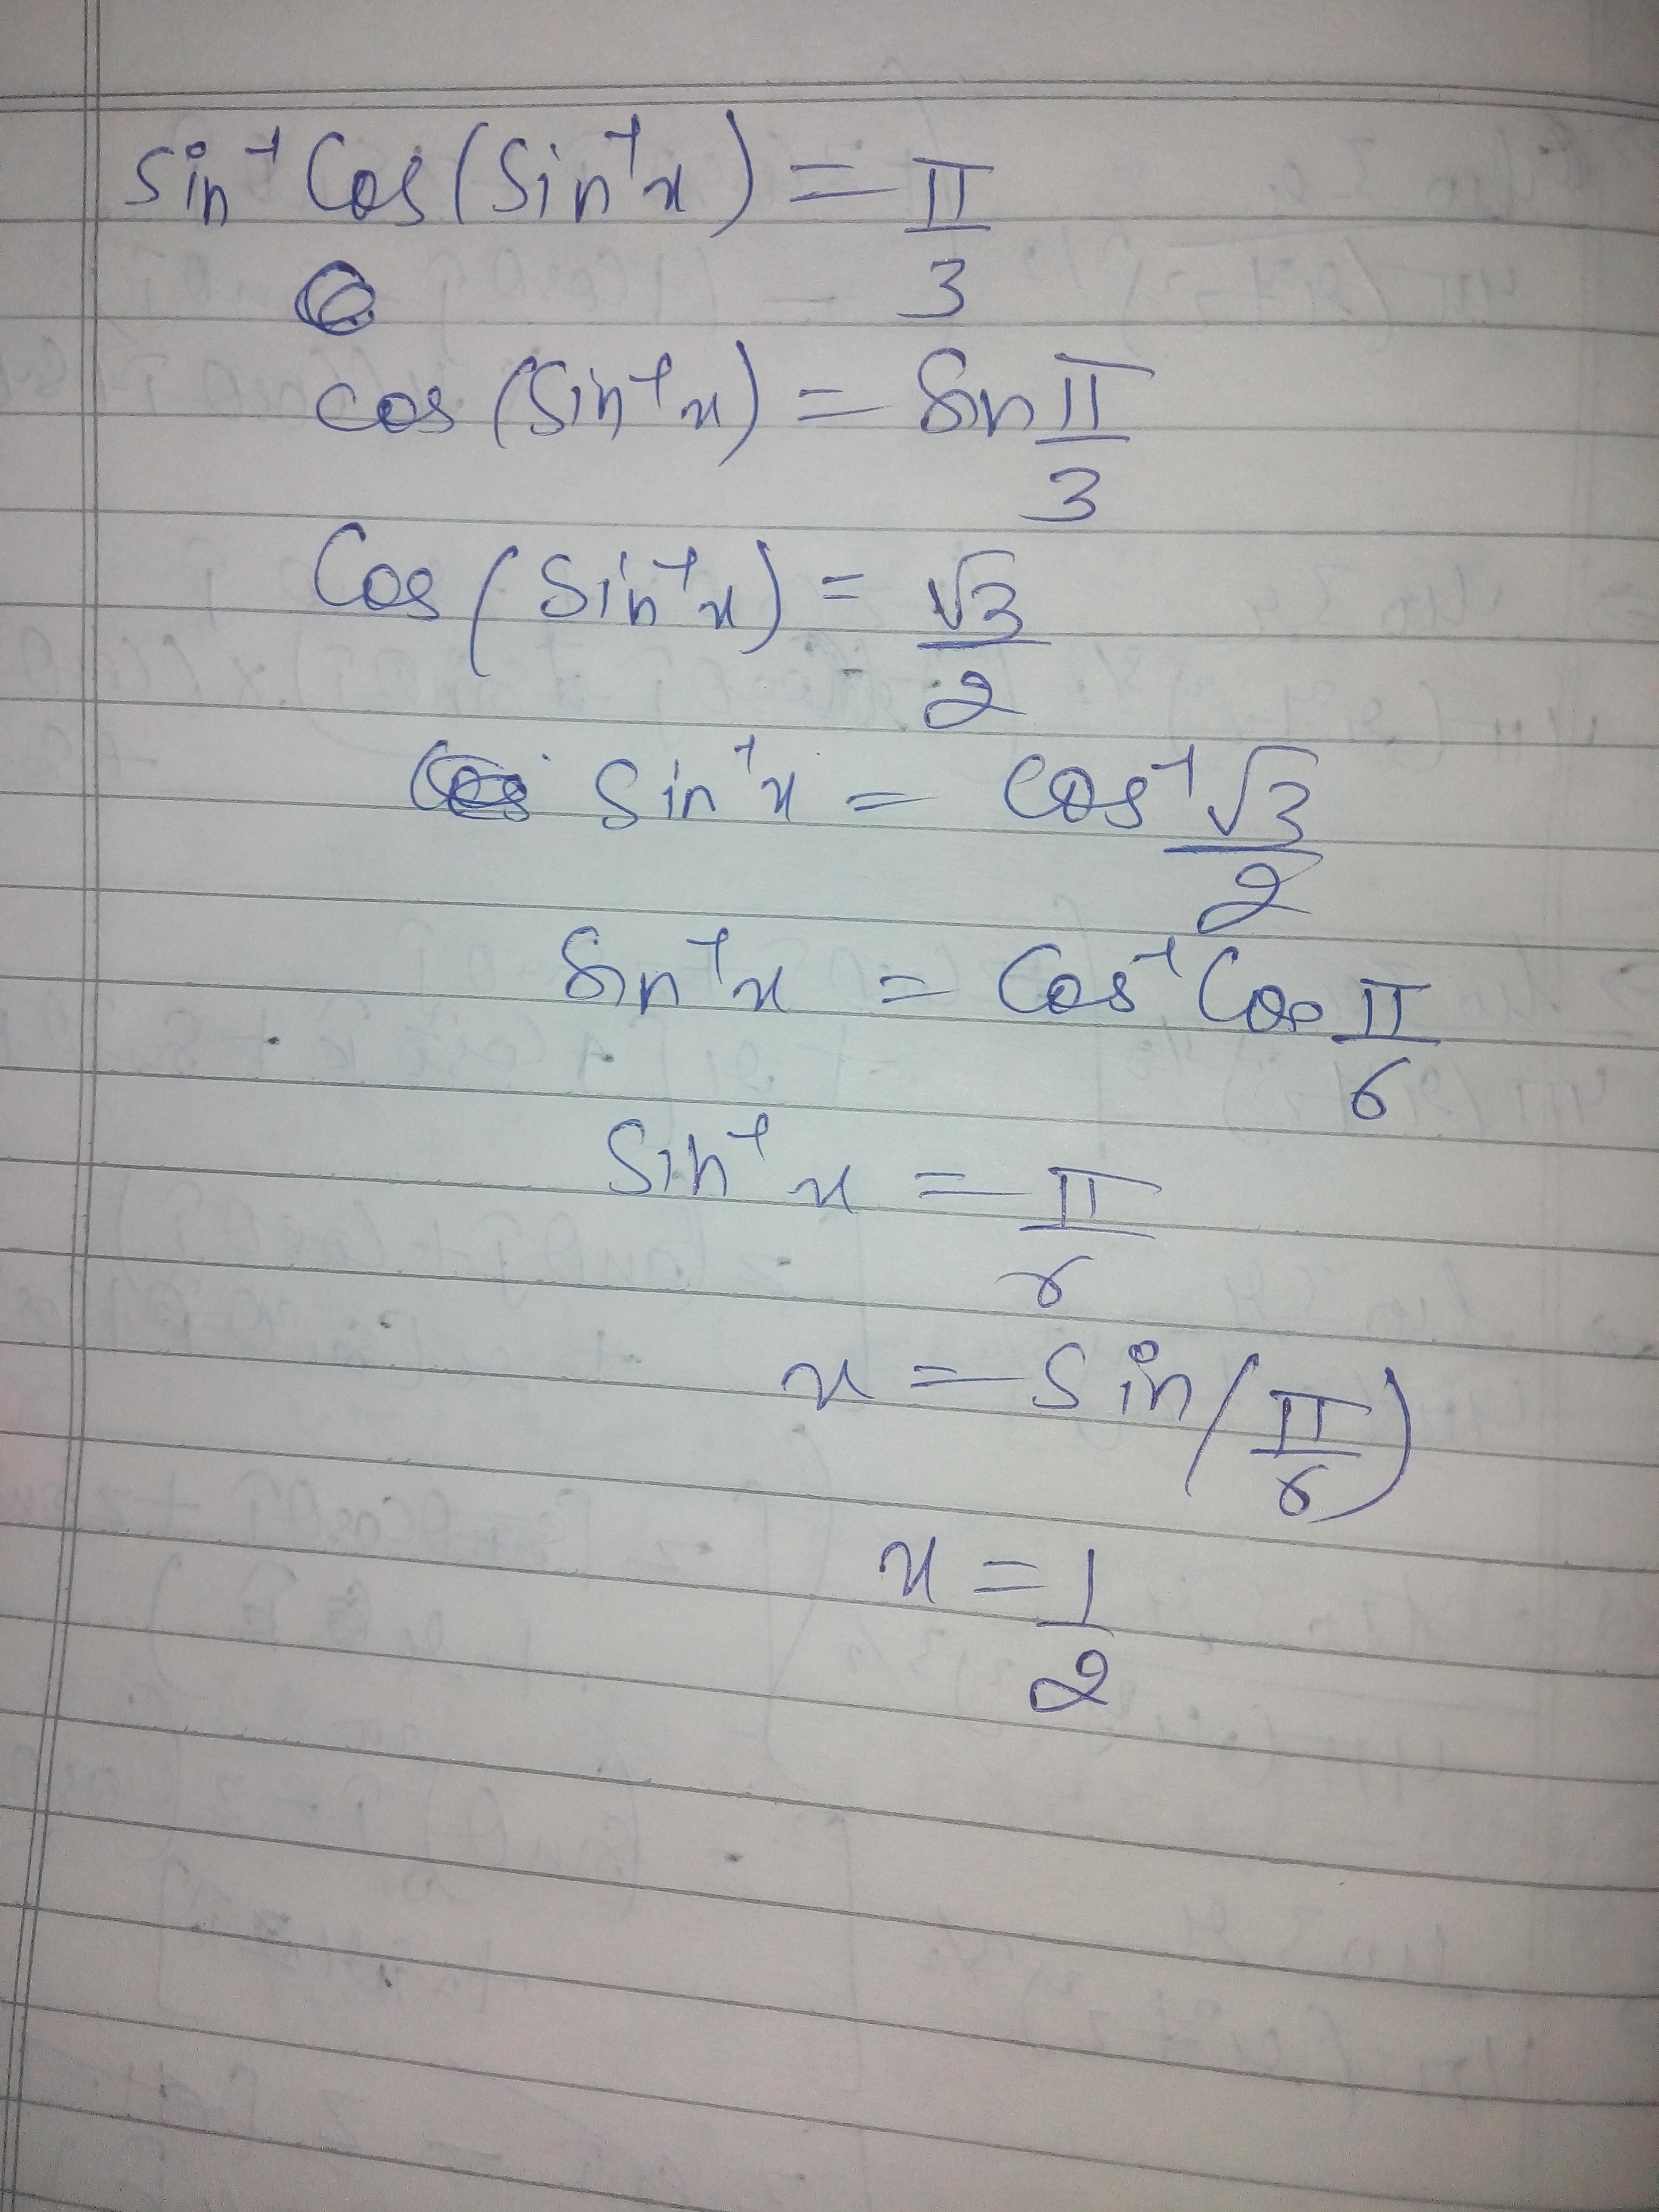 sin⁻¹ Cos(Sin⁻¹x) = π/3
cos (Sin⁻¹x) = Sin π/3
Cos (Sin⁻¹x) = √3/2
Sin⁻¹x = cos⁻¹ √3/2
Sin⁻¹x = Cos⁻¹ Cos π/6
Sin⁻¹ x = π/6
x = Sin(π/6)
x = 1/2